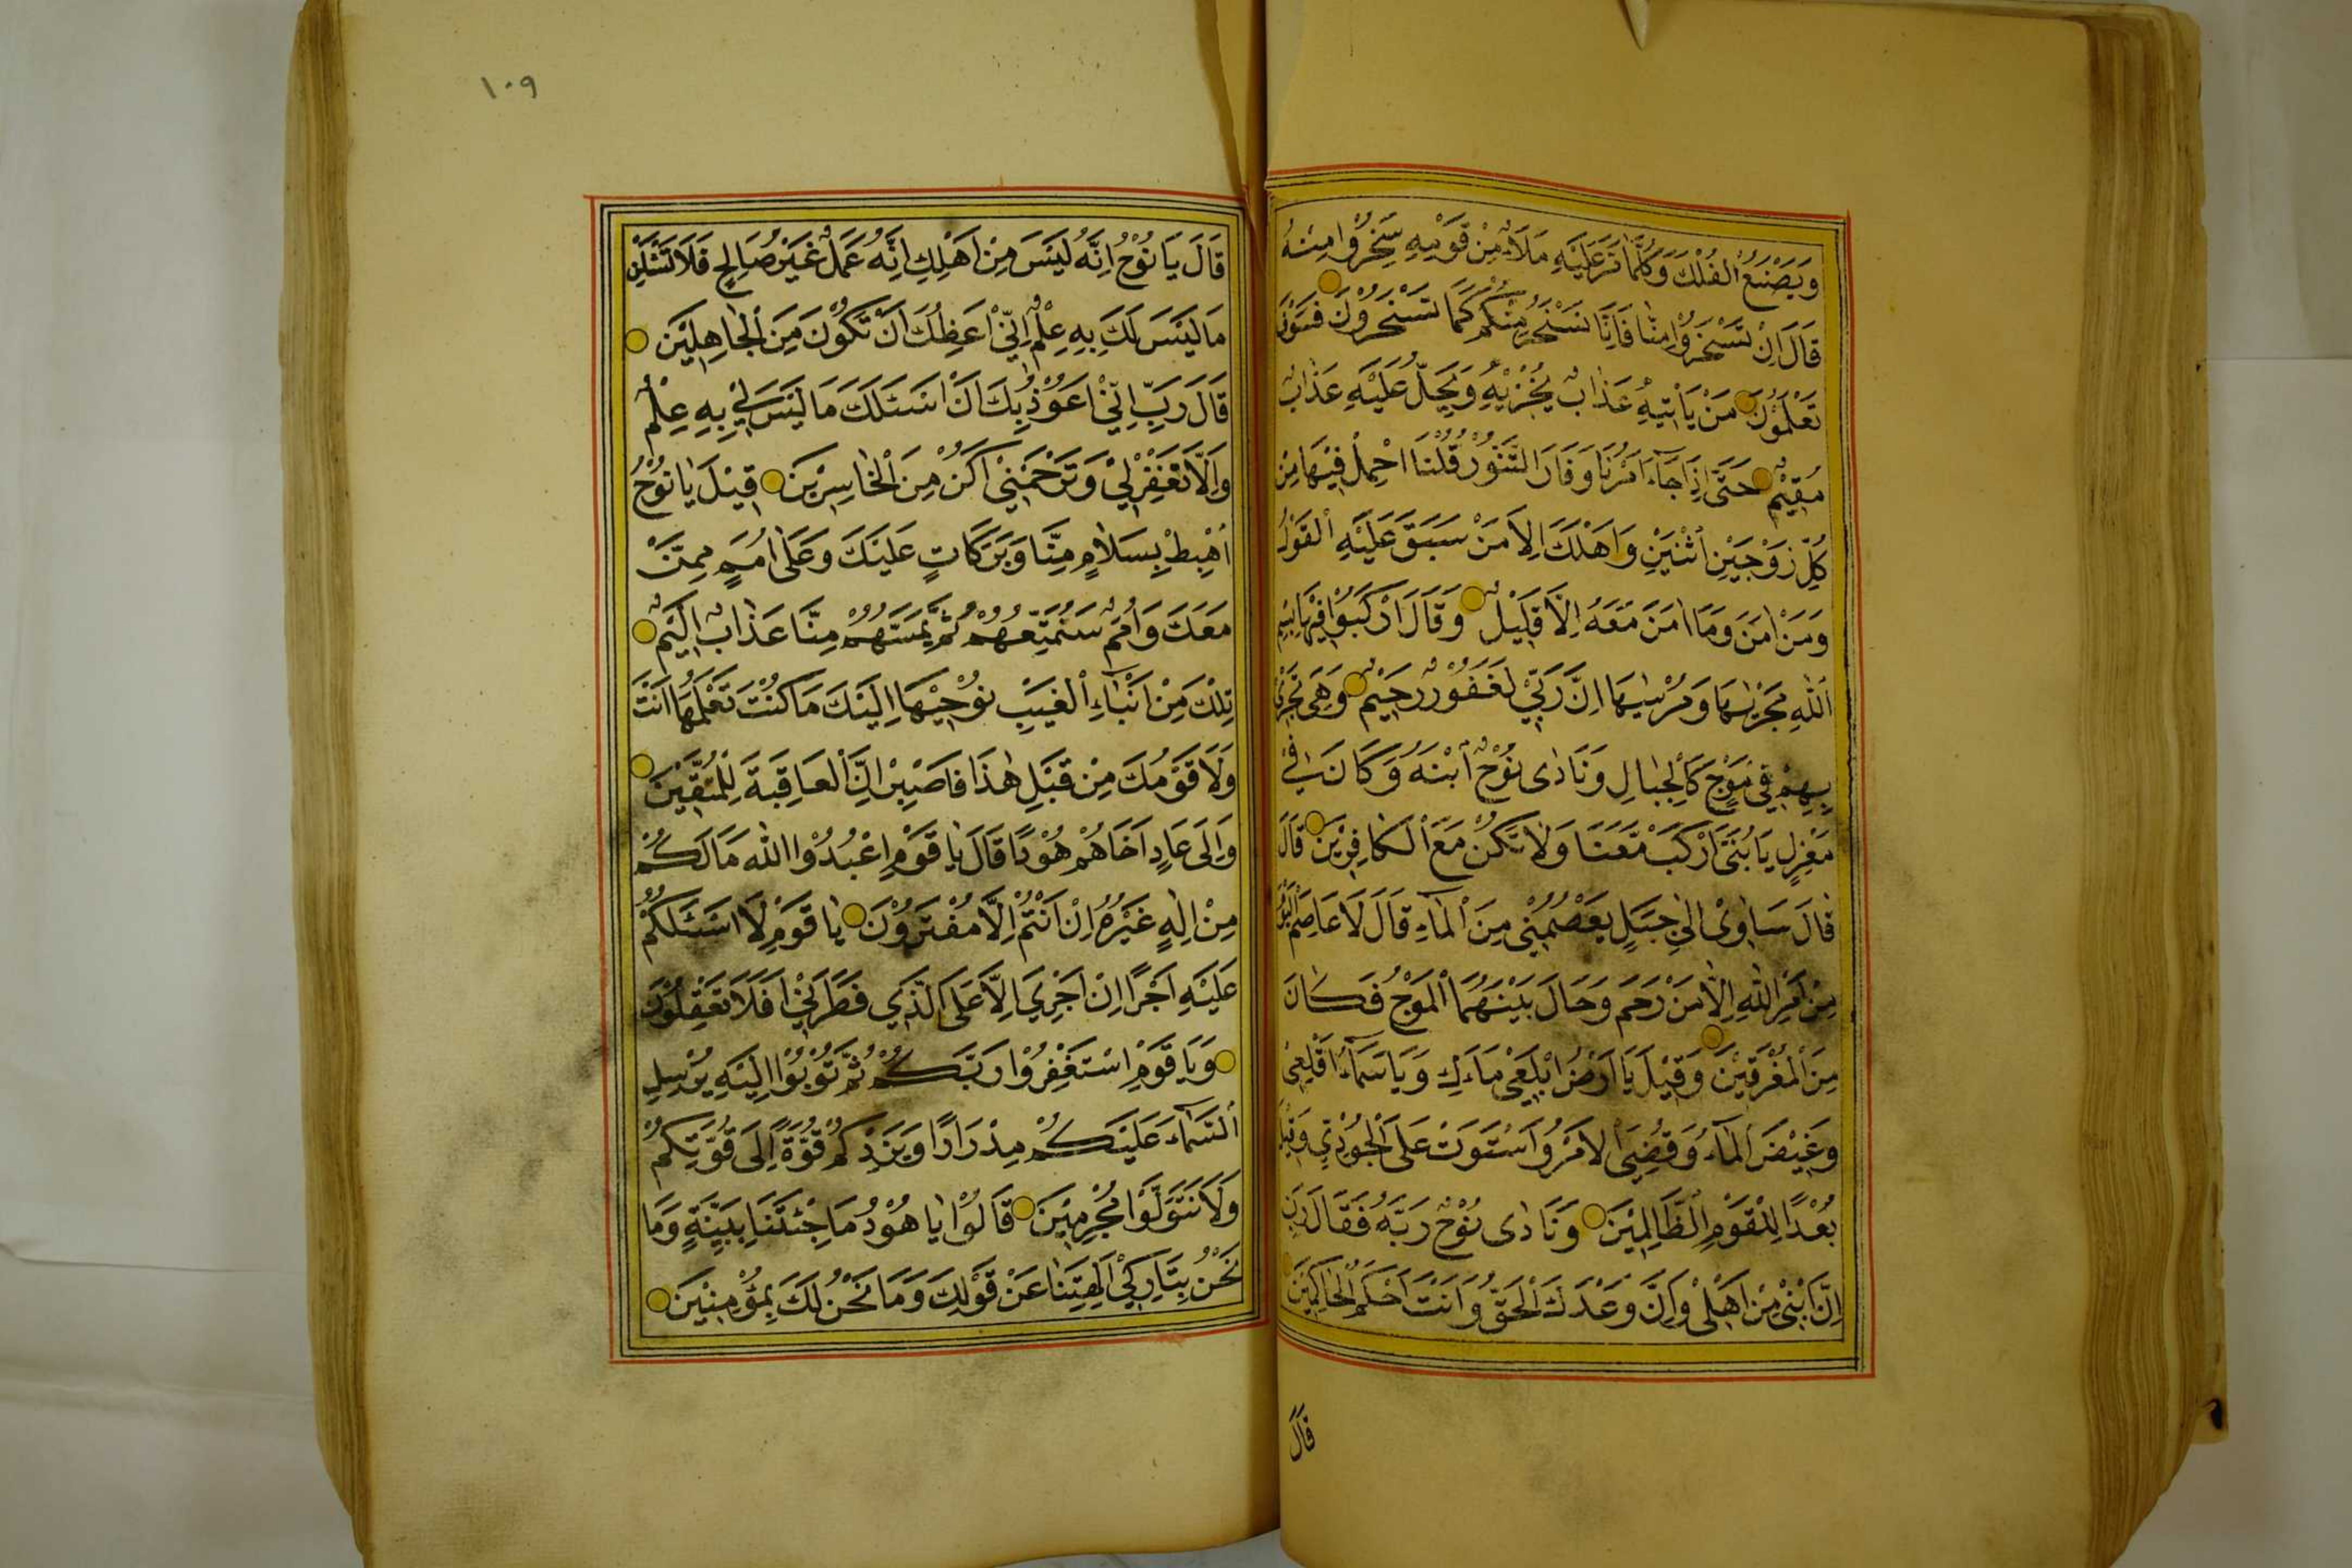 وَيَصْنَعُ الْفُلْكَ وَكُلَّمَا مَرَّ عَلَيْهِ مَلَاٌ مِنْ قَوْمِهِ سَخِرُوا مِنْهُ
قَالَ اِنْ تَسْخَرُوْا مِنَّا فَاِنَّا نَسْخَرُ مِنْكُمْ كَمَا تَسْخَرُوْنَ فَسَوْفَ
تَعْلَمُوْنَ مَنْ يَاْتِيْهِ عَذَابٌ يُخْزِيْهِ وَيَحِلُّ عَلَيْهِ عَذَابٌ
مُقِيْمٌ حَتّٰى اِذَا جَآءَ اَمْرُنَا وَفَارَ التَّنُّوْرُ قُلْنَا احْمِلْ فِيْهَا مِنْ
كُلٍّ زَوْجَيْنِ اثْنَيْنِ وَاَهْلَكَ اِلَّا مَنْ سَبَقَ عَلَيْهِ الْقَوْلُ
وَمَنْ اٰمَنَ وَمَا اٰمَنَ مَعَهُ اِلَّا قَلِيْلٌ وَقَالَ ارْكَبُوْا فِيْهَا بِسْمِ
اللّٰهِ مَجْرٰىهَا وَمُرْسٰيهَا اِنَّ رَبِّيْ لَغَفُوْرٌ رَحِيْمٌ وَهِيَ تَجْرِيْ
بِهِمْ فِيْ مَوْجٍ كَالْجِبَالِ وَنَادٰى نُوْحٌ ابْنَهُ وَكَانَ فِيْ
مَعْزِلٍ يَا بُنَيَّ ارْكَبْ مَعَنَا وَلَا تَكُنْ مَعَ الْكَافِرِيْنَ قَالَ
قَالَ سَاٰوِيْ اِلٰى جَبَلٍ يَعْصِمُنِيْ مِنَ الْمَآءِ قَالَ لَا عَاصِمَ الْيَوْمَ
مِنْ اَمْرِ اللّٰهِ اِلَّا مَنْ رَحِمَ وَحَالَ بَيْنَهُمَا الْمَوْجُ فَكَانَ
مِنَ الْمُغْرَقِيْنَ وَقِيْلَ يَا اَرْضُ ابْلَعِيْ مَاءَكِ وَيَا سَمَآءُ اَقْلِعِيْ
وَغِيْضَ الْمَآءُ وَقُضِيَ الْاَمْرُ وَاسْتَوَتْ عَلَى الْجُوْدِيِّ وَقِيْلَ
بُعْدًا لِلْقَوْمِ الظَّالِمِيْنَ وَنَادٰى نُوْحٌ رَبَّهُ فَقَالَ رَبِّ
اِنَّ ابْنِيْ مِنْ اَهْلِيْ وَاِنَّ وَعْدَكَ الْحَقُّ وَاَنْتَ اَحْكَمُ الْحَاكِمِيْنَ
قَالَ
١٠٩
قَالَ يَا نُوْحُ اِنَّهُ لَيْسَ مِنْ اَهْلِكَ اِنَّهُ عَمَلٌ غَيْرُ صَالِحٍ فَلَا تَسْئَلْنِ
مَا لَيْسَ لَكَ بِهِ عِلْمٌ اِنِّيْ اَعِظُكَ اَنْ تَكُوْنَ مِنَ الْجَاهِلِيْنَ
قَالَ رَبِّ اِنِّيْ اَعُوْذُ بِكَ اَنْ اَسْئَلَكَ مَا لَيْسَ لِيْ بِهِ عِلْمٌ
وَاِلَّا تَغْفِرْ لِيْ وَتَرْحَمْنِيْ اَكُنْ مِنَ الْخَاسِرِيْنَ قِيْلَ يَا نُوْحُ
اهْبِطْ بِسَلَامٍ مِنَّا وَبَرَكَاتٍ عَلَيْكَ وَعَلٰى اُمَمٍ مِمَّنْ
مَعَكَ وَاُمَمٌ سَنُمَتِّعُهُمْ ثُمَّ يَمَسُّهُمْ مِنَّا عَذَابٌ اَلِيْمٌ
تِلْكَ مِنْ اَنْبَاءِ الْغَيْبِ نُوْحِيْهَا اِلَيْكَ مَا كُنْتَ تَعْلَمُهَا اَنْتَ
وَلَا قَوْمُكَ مِنْ قَبْلِ هٰذَا فَاصْبِرْ اِنَّ الْعَاقِبَةَ لِلْمُتَّقِيْنَ
وَاِلٰى عَادٍ اَخَاهُمْ هُوْدًا قَالَ يَا قَوْمِ اعْبُدُوْا اللّٰهَ مَا لَكُمْ
مِنْ اِلٰهٍ غَيْرُهُ اِنْ اَنْتُمْ اِلَّا مُفْتَرُوْنَ يَا قَوْمِ لَا اَسْئَلُكُمْ
عَلَيْهِ اَجْرًا اِنْ اَجْرِيَ اِلَّا عَلَى الَّذِيْ فَطَرَنِيْ اَفَلَا تَعْقِلُوْنَ
وَيَا قَوْمِ اسْتَغْفِرُوْا رَبَّكُمْ ثُمَّ تُوْبُوْا اِلَيْهِ يُرْسِلِ
السَّمَآءَ عَلَيْكُمْ مِدْرَارًا وَيَزِدْكُمْ قُوَّةً اِلٰى قُوَّتِكُمْ
وَلَا تَتَوَلَّوْا مُجْرِمِيْنَ قَالُوْا يَا هُوْدُ مَا جِئْتَنَا بِبَيِّنَةٍ وَمَا
نَحْنُ بِتَارِكِيْ اٰلِهَتِنَا عَنْ قَوْلِكَ وَمَا نَحْنُ لَكَ بِمُؤْمِنِيْنَ